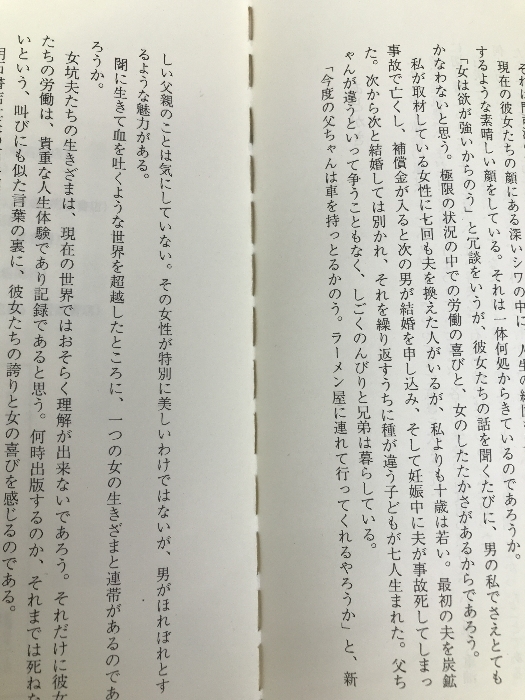 現在の彼女たちの顔にある深いシワの中に、人生の
するような素晴しい顔をしている。それは一体何処からきているのであろうか。
「女は欲が強いからのう」と冗談をいうが、彼女たちの話を聞くたびに、男の私でさえとても
かなわないと思う。極限の状況の中での労働の喜びと、女のしたたかさがあるからであろう。
私が取材している女性に七回も夫を換えた人がいるが、私よりも十歳は若い。最初の夫を炭鉱
事故で亡くし、補償金が入ると次の男が結婚を申し込み、そして妊娠中に夫が事故死してしまっ
た。次から次と結婚しては別かれ、それを繰り返すうちに種が違う子どもが七人生まれた。父ち
ゃんが違うといって争うこともなく、しごくのんびりと兄弟は暮らしている。
「今度の父ちゃんは車を持っとるかのう。ラーメン屋に連れて行ってくれるやろうか」と、新
しい父親のことは気にしていない。その女性が特別に美しいわけではないが、男がほれぼれとす
るような魅力がある。
闇に生きて血を吐くような世界を超越したところに、一つの女の生きざまと連帯があるのであ
ろうか。
女坑夫たちの生きざまは、現在の世界ではおそらく理解が出来ないであろう。それだけに彼女
たちの労働は、貴重な人生体験であり記録であると思う。何時出版するのか、それまでは死ねな
いという、叫びにも似た言葉の裏に、彼女たちの誇りと女の喜びを感じるのである。